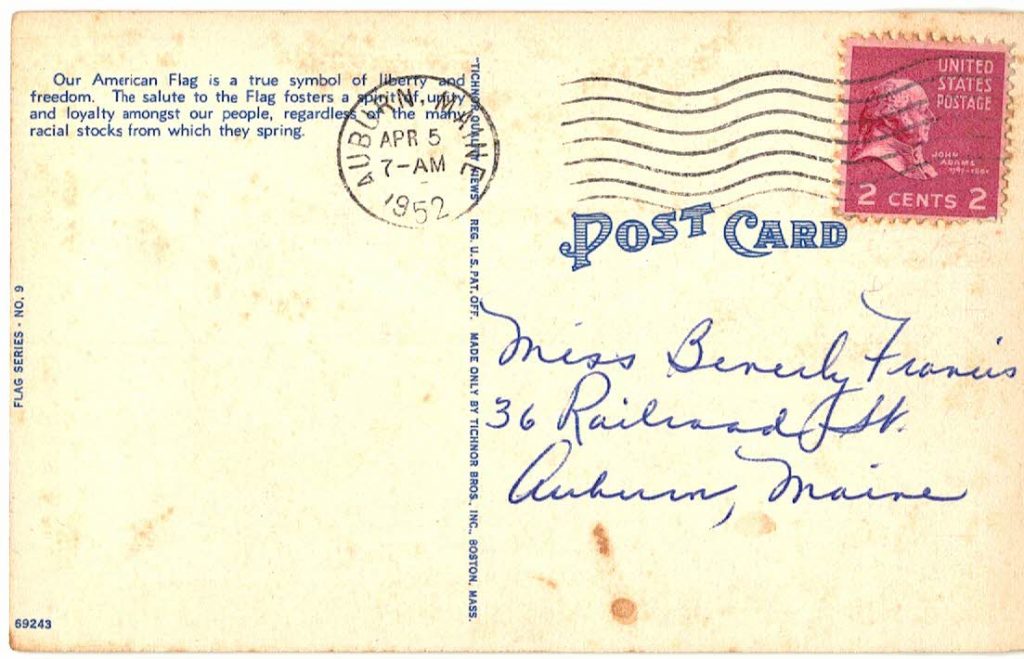 Our American Flag is a true symbol of liberty and
freedom. The salute to the Flag fosters a spirit of unity
and loyalty amongst our people, regardless of the many
racial stocks from which they spring.
AUBURN, MAINE
APR 5
7-AM
1952
UNITED
STATES
POSTAGE
JOHN
ADAMS
1797-1801
2 CENTS 2
POST CARD
"TICHNOR QUALITY VIEWS" REG. U.S. PAT. OFF. MADE ONLY BY TICHNOR BROS., INC., BOSTON, MASS.
FLAG SERIES - NO. 9
Miss Beverly Francis
36 Railroad St.
Auburn, Maine
69243